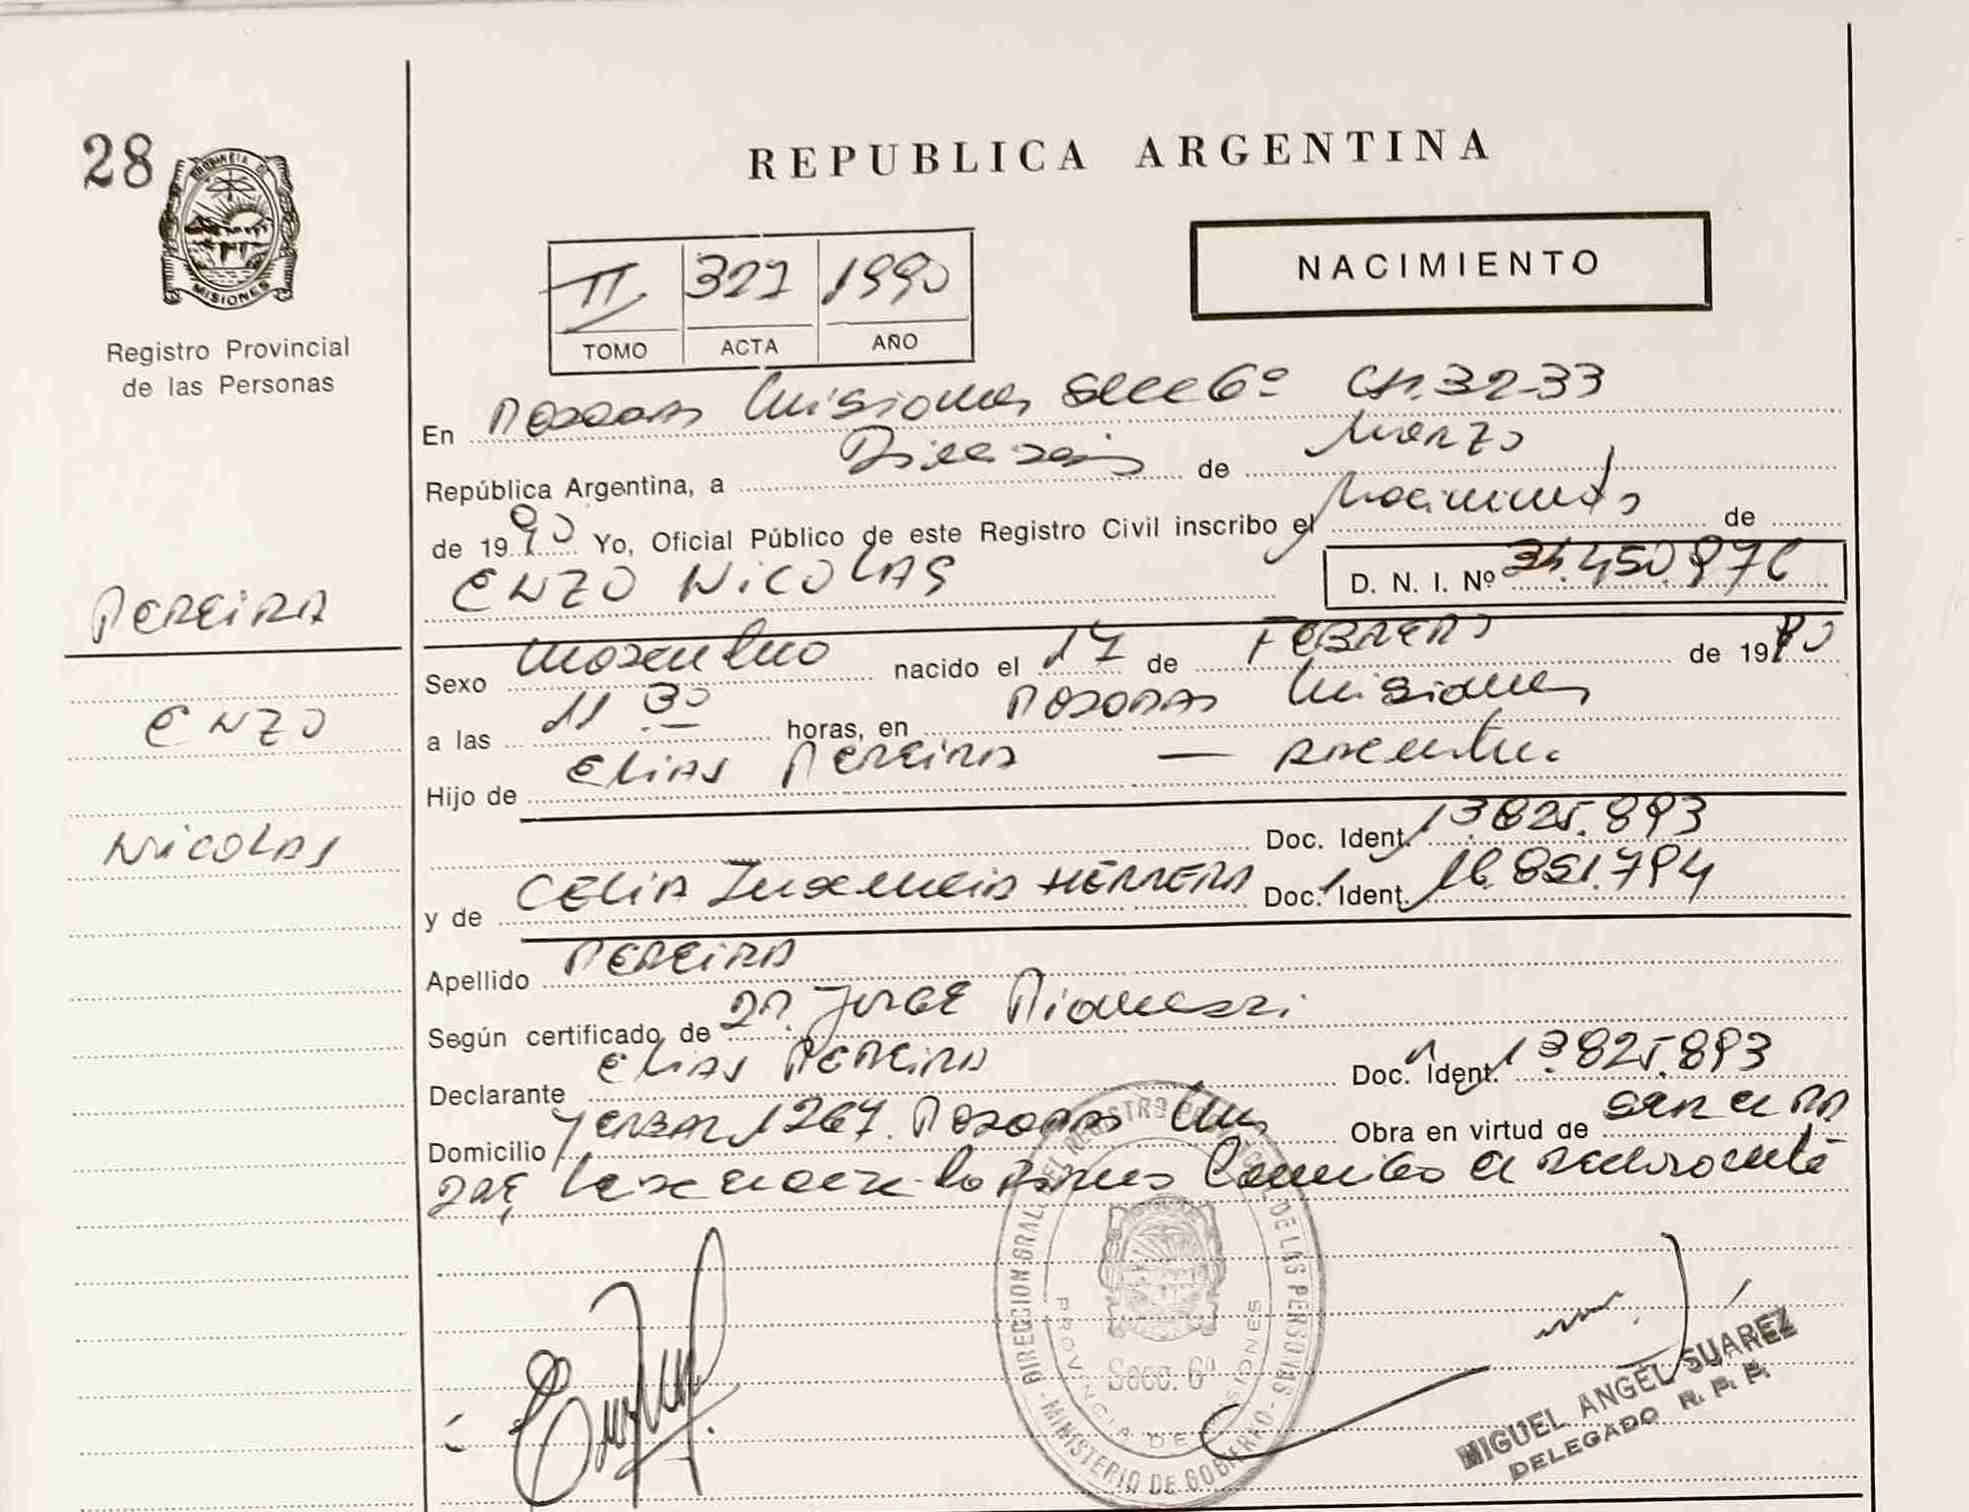 28
PROVINCIA DE
MISIONES
Registro Provincial
de las Personas
REPUBLICA ARGENTINA
NACIMIENTO
II 327 1990
TOMO ACTA AÑO
En Posadas Misiones Secc 6º CH. 32-33
República Argentina, a Dieciseis de Marzo
de 1990 Yo, Oficial Público de este Registro Civil inscribo el Nacimiento de
ENZO NICOLAS D. N. I. Nº 34.450.976
PEREIRA
Sexo Masculino nacido el 17 de FEBRERO de 1990
ENZO
a las 11 30 horas, en POSADAS Misiones
Hijo de ELIAS PEREIRA — Argentino
NICOLAS
Doc. Ident. 13.825.893
y de CELIA HERRERA Doc. Ident. 16.851.794
Apellido PEREIRA
Según certificado de DR. JORGE
Declarante ELIAS PEREIRA Doc. Ident. 13.825.893
Domicilio YERBAL 1267. Posadas Mis Obra en virtud de
DIRECCION GRAL. DEL REGISTRO PROVINCIAL DE LAS PERSONAS
Secc. 6ª
PROVINCIA DE MISIONES
MINISTERIO DE GOBIERNO
MIGUEL ANGEL SUAREZ
DELEGADO R. P. P.